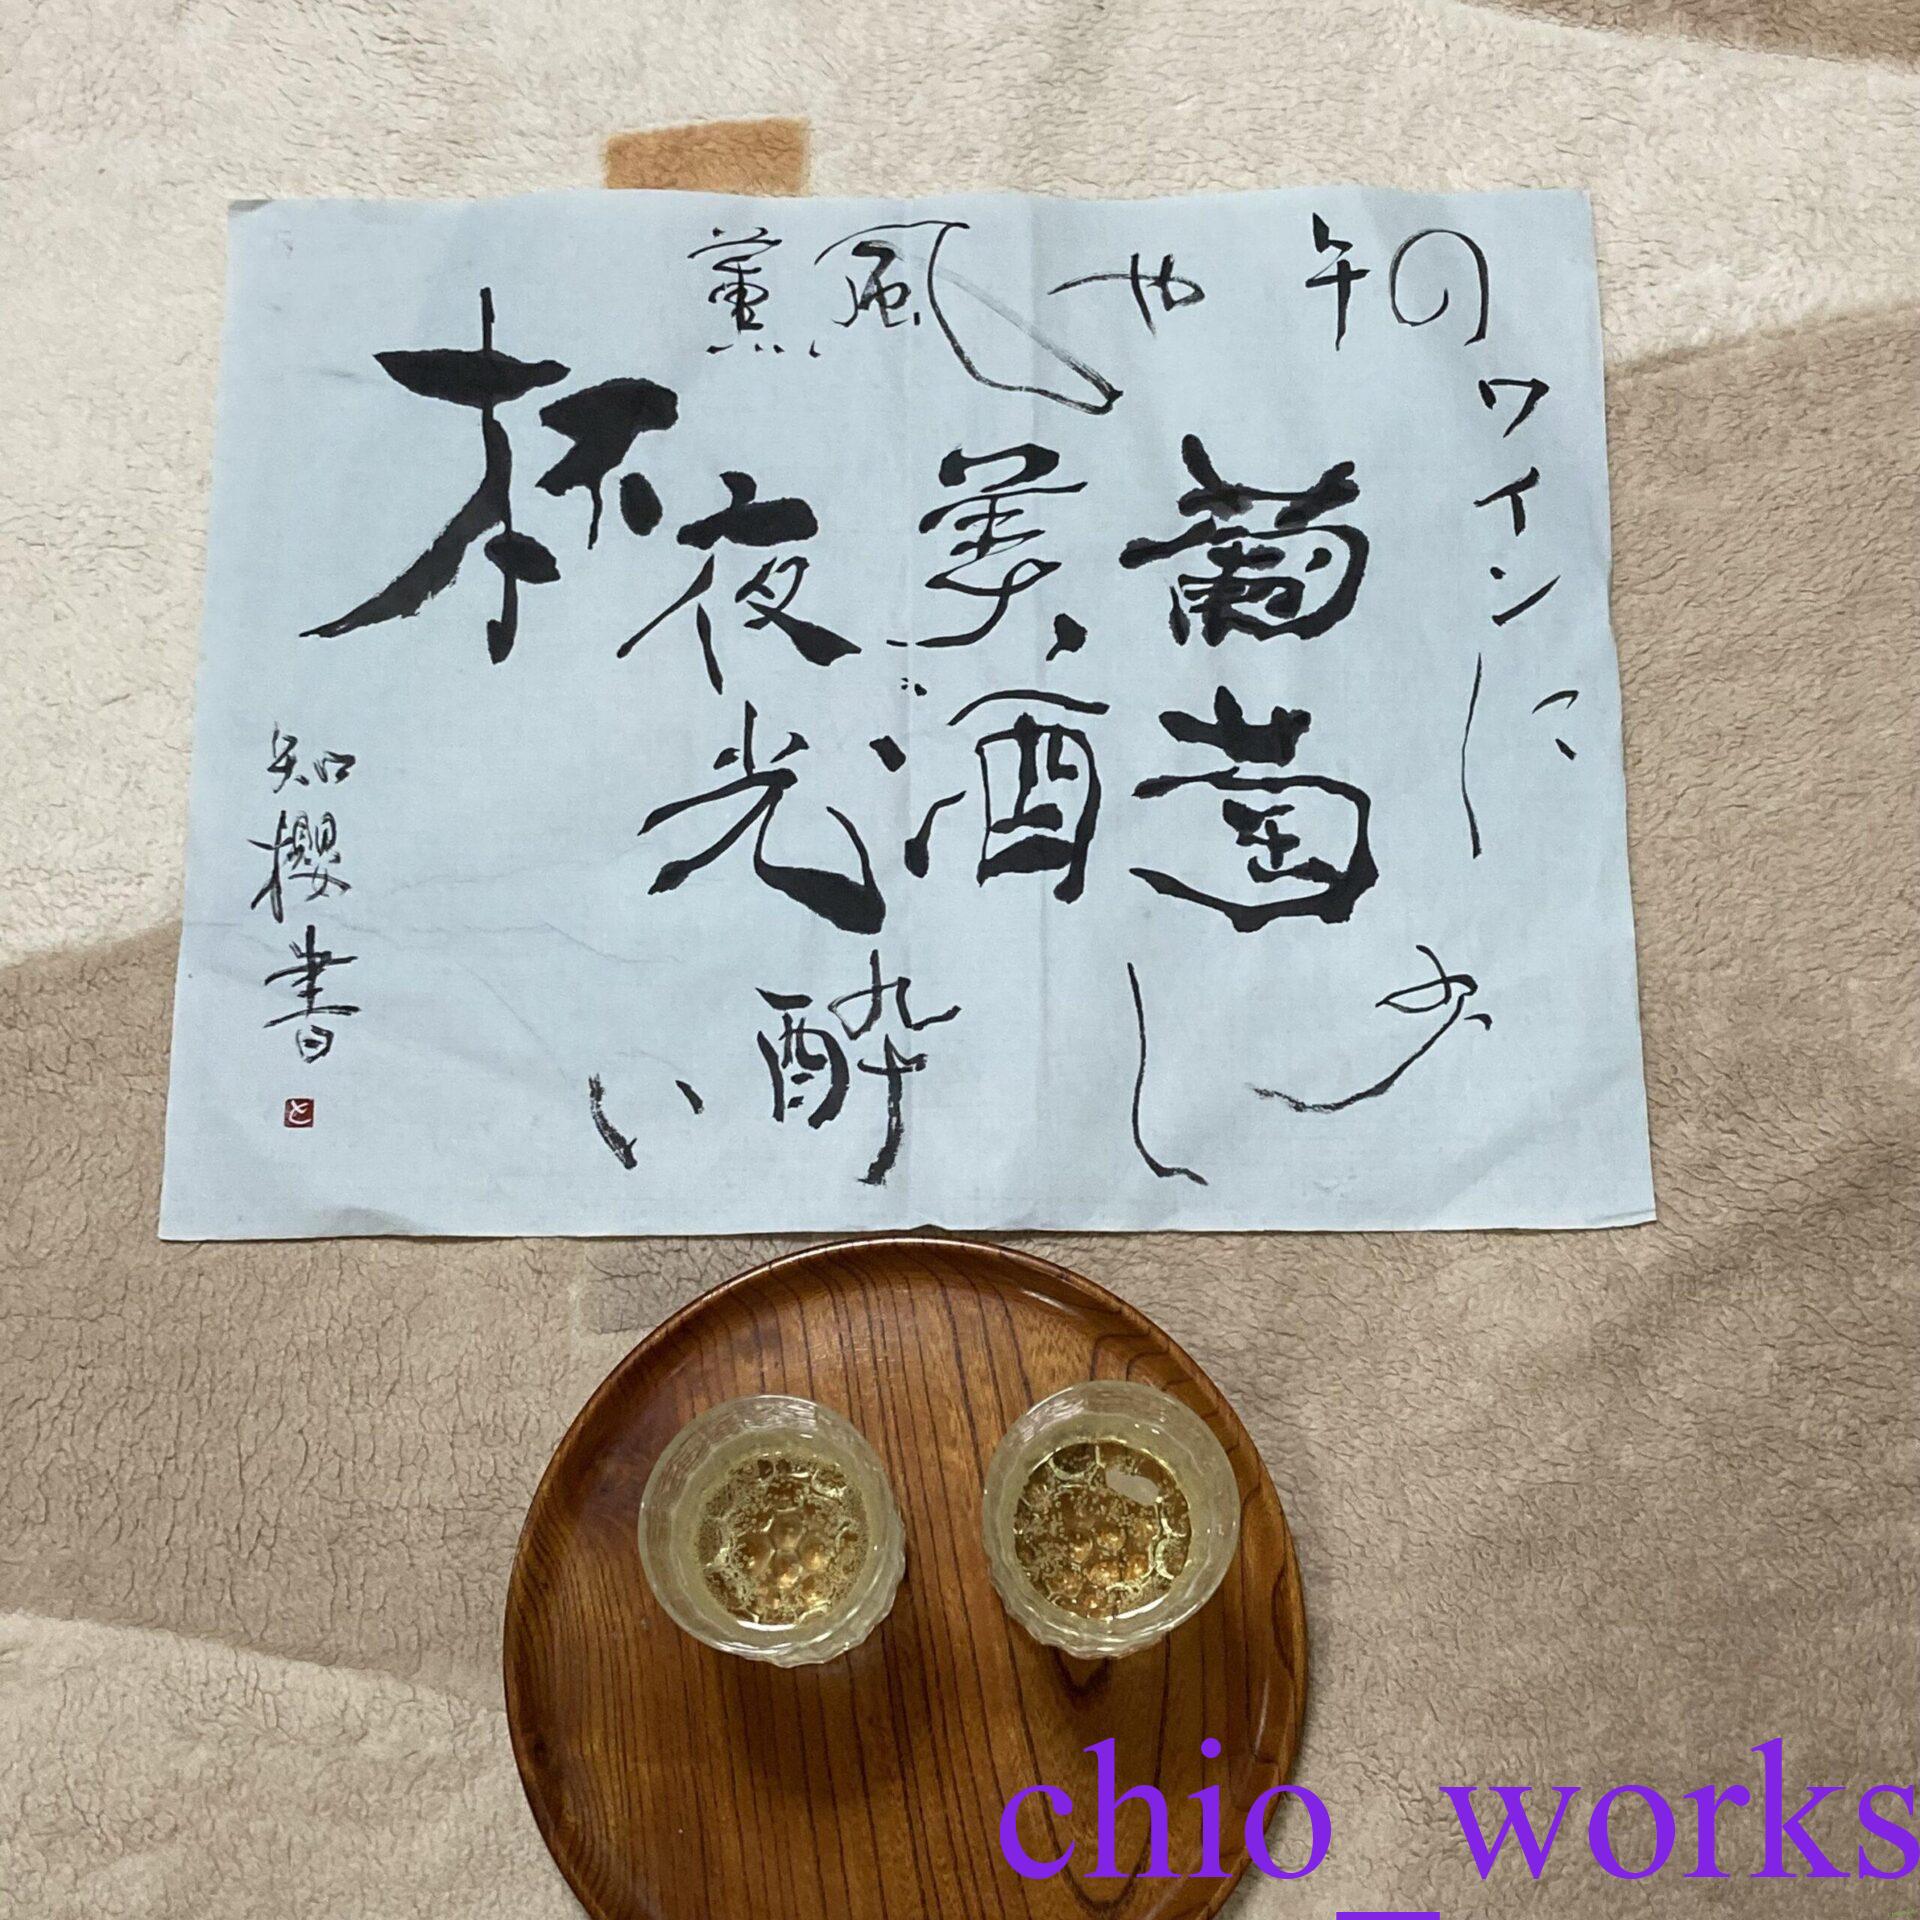 薫風や午の
ワインに
少し酔い
葡萄
美酒
夜光
杯
知櫻書
chio_works